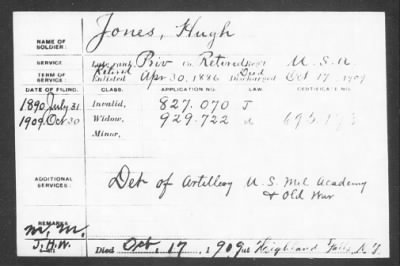 NAME OF SOLDIER: Jones, Hugh
SERVICE: Late rank, Priv Co. Retired Reg't U. S. A.
TERM OF SERVICE: Retired Enlisted Apr 30, 1886 Died Discharged Oct 17, 1909
DATE OF FILING. CLASS. APPLICATION NO. LAW. CERTIFICATE NO.
1890 July 31 Invalid, 827.070 J
1909. Oct 30 Widow, 929.722
Minor,
ADDITIONAL SERVICES: Det of Artillery U.S. Mil Academy
& Old War
REMARKS:
M. M.
J.H.W.
Died Oct. 17, 1909, at Highland Falls, N.Y.